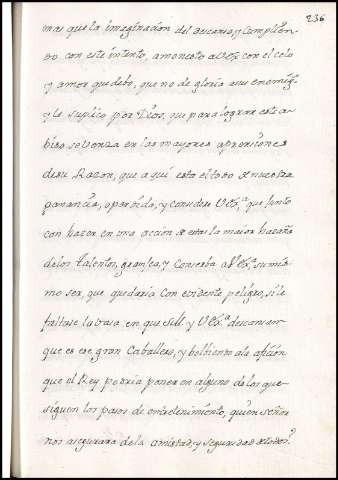 236
mas que la imaginacion del descanso, y Cumplien-
do con este intento, amonesto a Vex.ª con el celo
y amor que debo, que no de gloria a sus enemig.s
y le suplico por Dios, que para lograr este a-
biso se benza en las mayores aprensiones
de su Razon, que aqui esta el todo de nuestra
ganancia, o perdida, y considere V Ex.ª que junto
con hazer en una accion de estas la maior hazaña
de los talentos, grangea, y Conserba a V Ex.ª su mis-
mo ser, que quedaria con evidente peligro, si le
faltase la basa en que S.M. y V Ex.ª descansan
que es ese gran Caballero, y bolbiendo a la aficion
que el Rey podria poner en alguno de los que
siguen los pasos de entretenimiento, quien señor
nos asegurara de la amistad, y seguridad de todos?